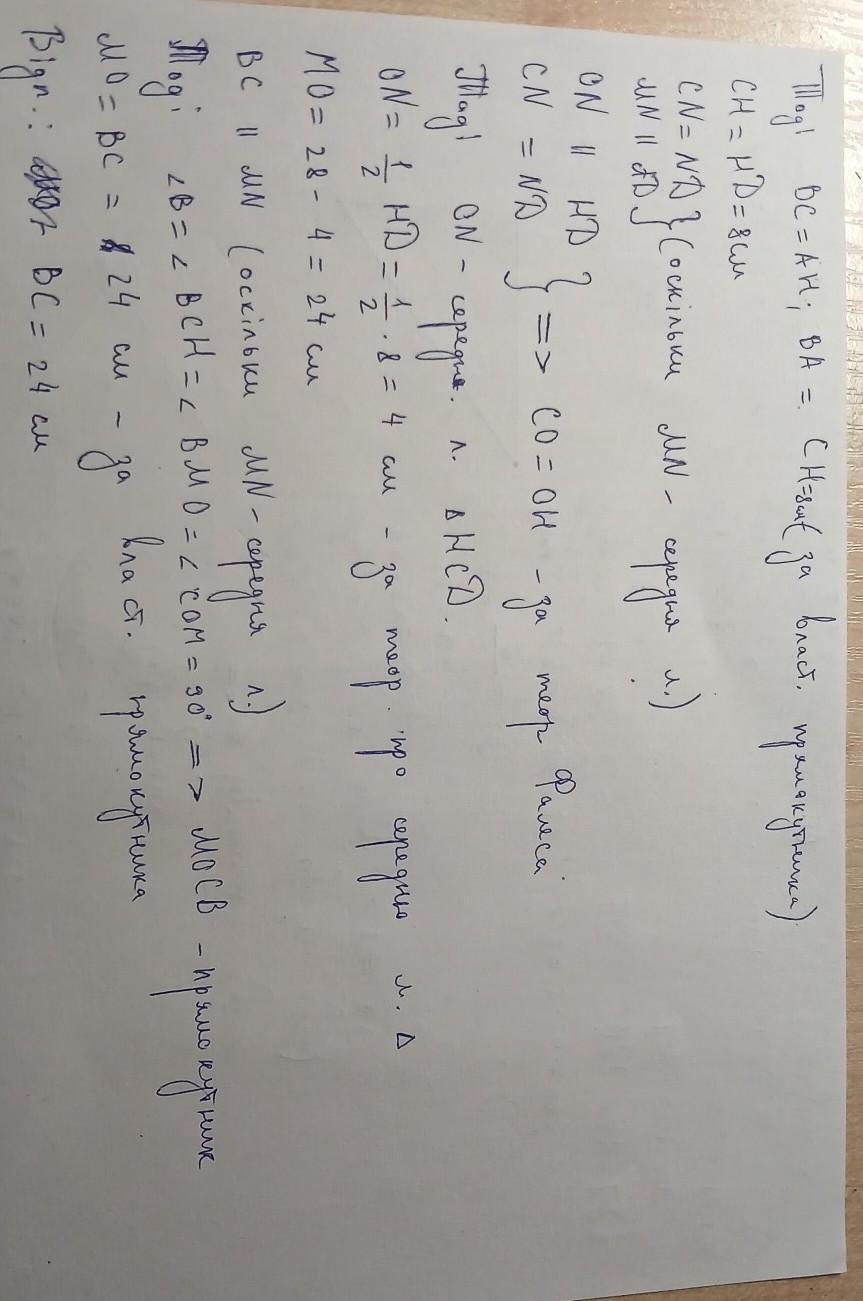 Тоді BC = AH; BA = CH = 8 см (за власт. прямокутника)
CH = HD = 8 см
CN = ND } (оскільки MN - середня л.)
MN || AD
ON || HD } => CO = OH - за теор Фалеса
CN = ND
Тоді ON - середня. л. Δ HCD.
ON = 1/2 HD = 1/2 · 8 = 4 см - за теор. про середню л. Δ
MO = 28 - 4 = 24 см
BC || MN (оскільки MN - середня л.)
Тоді ∠B = ∠BCH = ∠BMO = ∠COM = 90° => MOCB - прямокутник
MO = BC = 24 см - за власт. прямокутника
Відп.: BC = 24 см